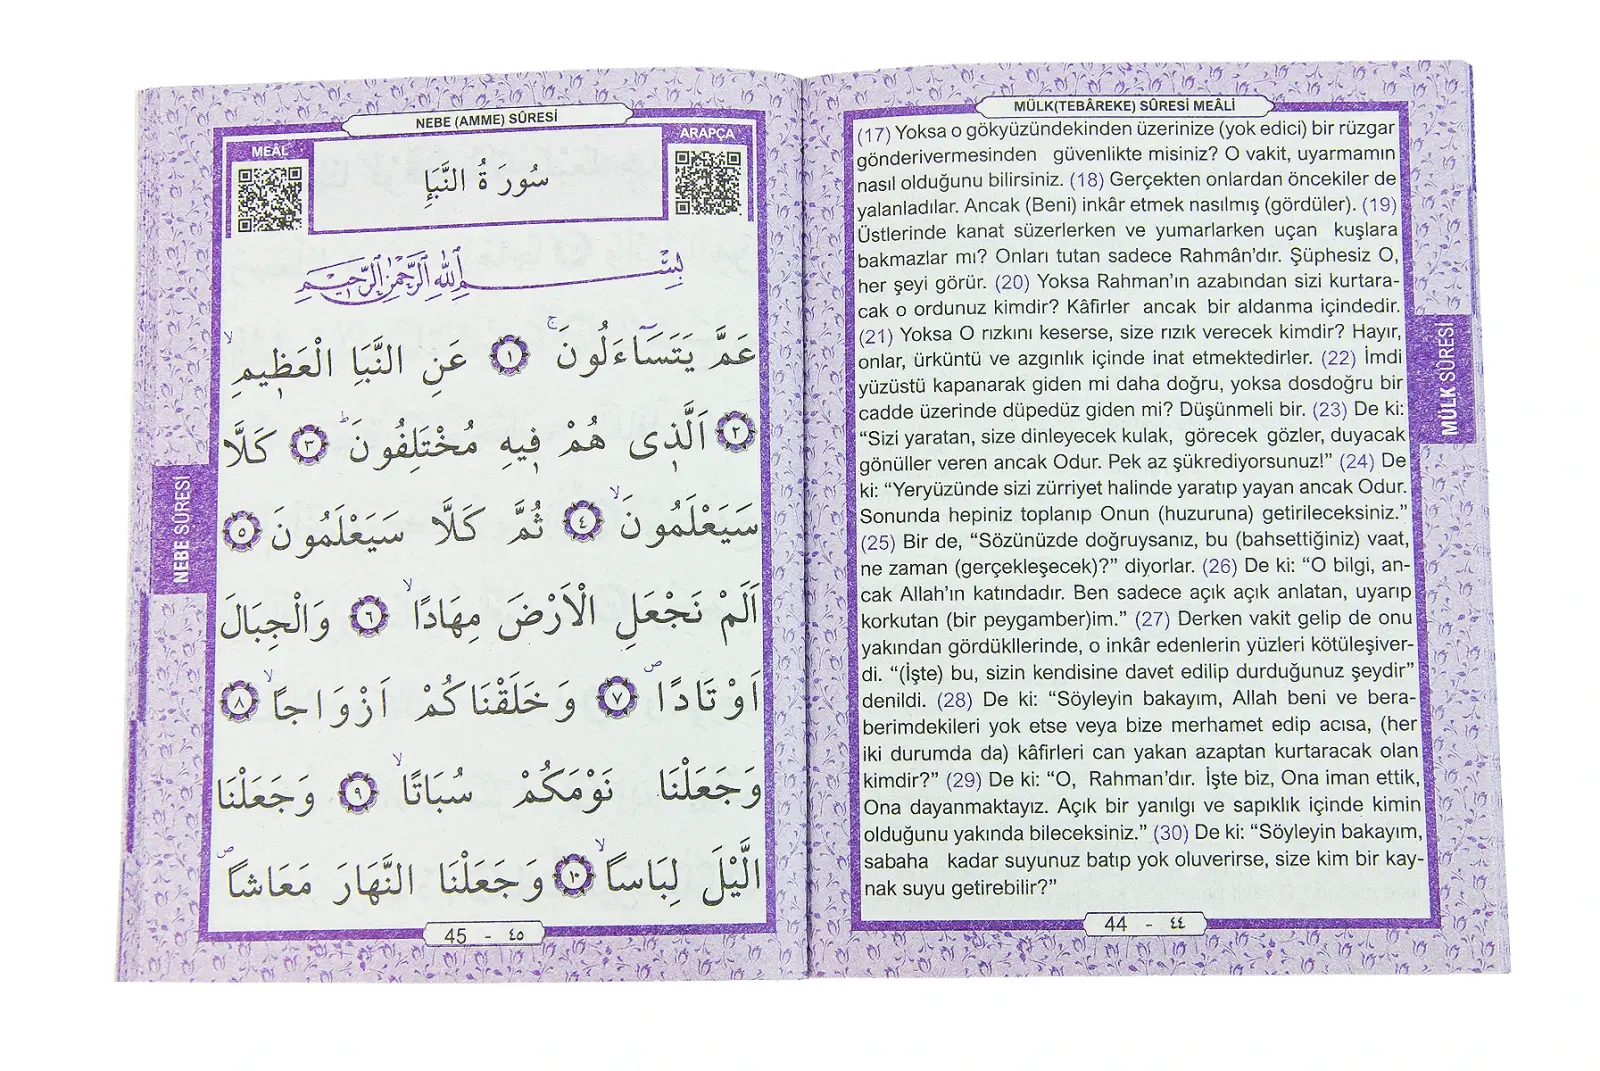 MÜLK(TEBÂREKE) SÛRESİ MEÂLİ
(17) Yoksa o gökyüzündekinden üzerinize (yok edici) bir rüzgar
gönderivermesinden güvenlikte misiniz? O vakit, uyarmamın
nasıl olduğunu bilirsiniz. (18) Gerçekten onlardan öncekiler de
yalanladılar. Ancak (Beni) inkâr etmek nasılmış (gördüler). (19)
Üstlerinde kanat süzerlerken ve yumarlarken uçan kuşlara
bakmazlar mı? Onları tutan sadece Rahmân’dır. Şüphesiz O,
her şeyi görür. (20) Yoksa Rahman’ın azabından sizi kurtara-
cak o ordunuz kimdir? Kâfirler ancak bir aldanma içindedir.
(21) Yoksa O rızkını keserse, size rızık verecek kimdir? Hayır,
onlar, ürküntü ve azgınlık içinde inat etmektedirler. (22) İmdi
yüzüstü kapanarak giden mi daha doğru, yoksa dosdoğru bir
cadde üzerinde düpedüz giden mi? Düşünmeli bir. (23) De ki:
“Sizi yaratan, size dinleyecek kulak, görecek gözler, duyacak
gönüller veren ancak Odur. Pek az şükrediyorsunuz!” (24) De
ki: “Yeryüzünde sizi zürriyet halinde yaratıp yayan ancak Odur.
Sonunda hepiniz toplanıp Onun (huzuruna) getirileceksiniz.”
(25) Bir de, “Sözünüzde doğruysanız, bu (bahsettiğiniz) vaat,
ne zaman (gerçekleşecek)?” diyorlar. (26) De ki: “O bilgi, an-
cak Allah’ın katındadır. Ben sadece açık açık anlatan, uyarıp
korkutan (bir peygamber)im.” (27) Derken vakit gelip de onu
yakından gördükllerinde, o inkâr edenlerin yüzleri kötüleşiver-
di. “(İşte) bu, sizin kendisine davet edilip durduğunuz şeydir”
denildi. (28) De ki: “Söyleyin bakayım, Allah beni ve bera-
berimdekileri yok etse veya bize merhamet edip acısa, (her
iki durumda da) kâfirleri can yakan azaptan kurtaracak olan
kimdir?” (29) De ki: “O, Rahman’dır. İşte biz, Ona iman ettik,
Ona dayanmaktayız. Açık bir yanılgı ve sapıklık içinde kimin
olduğunu yakında bileceksiniz.” (30) De ki: “Söyleyin bakayım,
sabaha kadar suyunuz batıp yok oluverirse, size kim bir kay-
nak suyu getirebilir?”
44 - ٤٤
MÜLK SÛRESİ
NEBE (AMME) SÛRESİ
ARAPÇA
MEÂL
سُورَةُ النَّبَإِ
بِسْــــــمِ اللهِ الرَّحْمٰنِ الرَّحٖيمِ
عَمَّ يَتَسَٓاءَلُونَۚ ١ عَنِ النَّبَأِ الْعَظٖيمِۙ
٢ اَلَّذٖى هُمْ فٖيهِ مُخْتَلِفُونَؕ ٣ كَلَّا
سَيَعْلَمُونَۙ ٤ ثُمَّ كَلَّا سَيَعْلَمُونَ ٥
اَلَمْ نَجْعَلِ الْاَرْضَ مِهَادًاۙ ٦ وَالْجِبَالَ
اَوْتَادًاۖ ٧ وَخَلَقْنَاكُمْ اَزْوَاجًاۙ ٨
وَجَعَلْنَا نَوْمَكُمْ سُبَاتًاۙ ٩ وَجَعَلْنَا
الَّيْلَ لِبَاسًاۙ ١٠ وَجَعَلْنَا النَّهَارَ مَعَاشًاۖ
45 - ٤٥
NEBE SÛRESİ